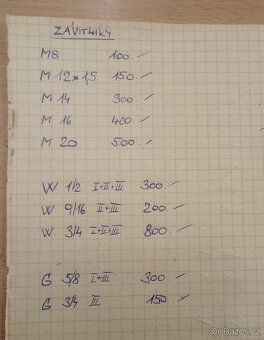 ZÁVITNÍKY
M8 100.-
M 12 x 1,5 150.-
M 14 300.-
M 16 400.-
M 20 500.-
W 1/2 I+II+III 300.-
W 9/16 II+III 200.-
W 3/4 I+II+III 800.-
G 5/8 I+III 300.-
G 3/4 III 150.-
© Bazoš.cz